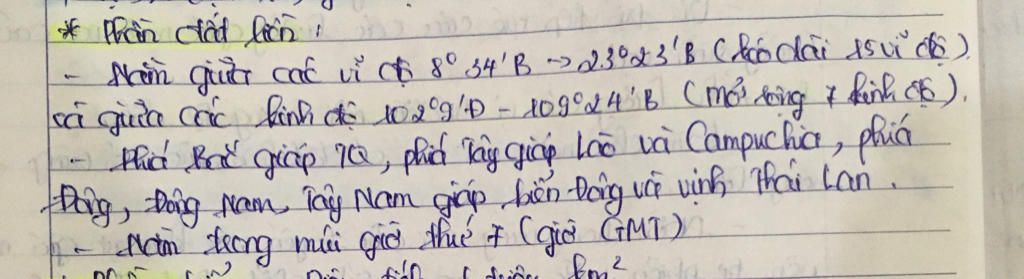 * Phần đất liền:
- Nằm giữa các vĩ độ 8°34'B → 23°23'B (kéo dài 15 vĩ độ).
và giữa các kinh độ 102°9'Đ - 109°24'B (mở rộng 7 kinh độ).
- Phía Bắc giáp TQ, phía Tây giáp Lào và Campuchia, phía
Đông, Đông Nam, Tây Nam giáp biển Đông và vịnh Thái Lan.
- Nằm trong múi giờ thứ 7 (giờ GMT)
km²